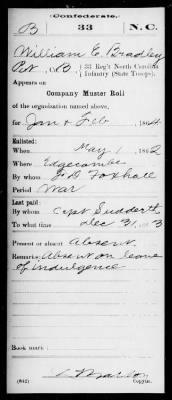 Confederate.
B 33 N.C.
William E. Bradley
Pvt, Co. B, 33 Reg't North Carolina
Infantry (State Troops).
Appears on
Company Muster Roll
of the organization named above,
for Jan & Feb, 1864
Enlisted:
When May 1, 1862
Where Edgecombe
By whom J. D. Foxhall
Period War
Last paid:
By whom Capt Sudderth
To what time Dec 31, 1863
Present or absent Absent
Remarks: Absent on leave
of indulgence
Book mark:
(642)
Copyist.